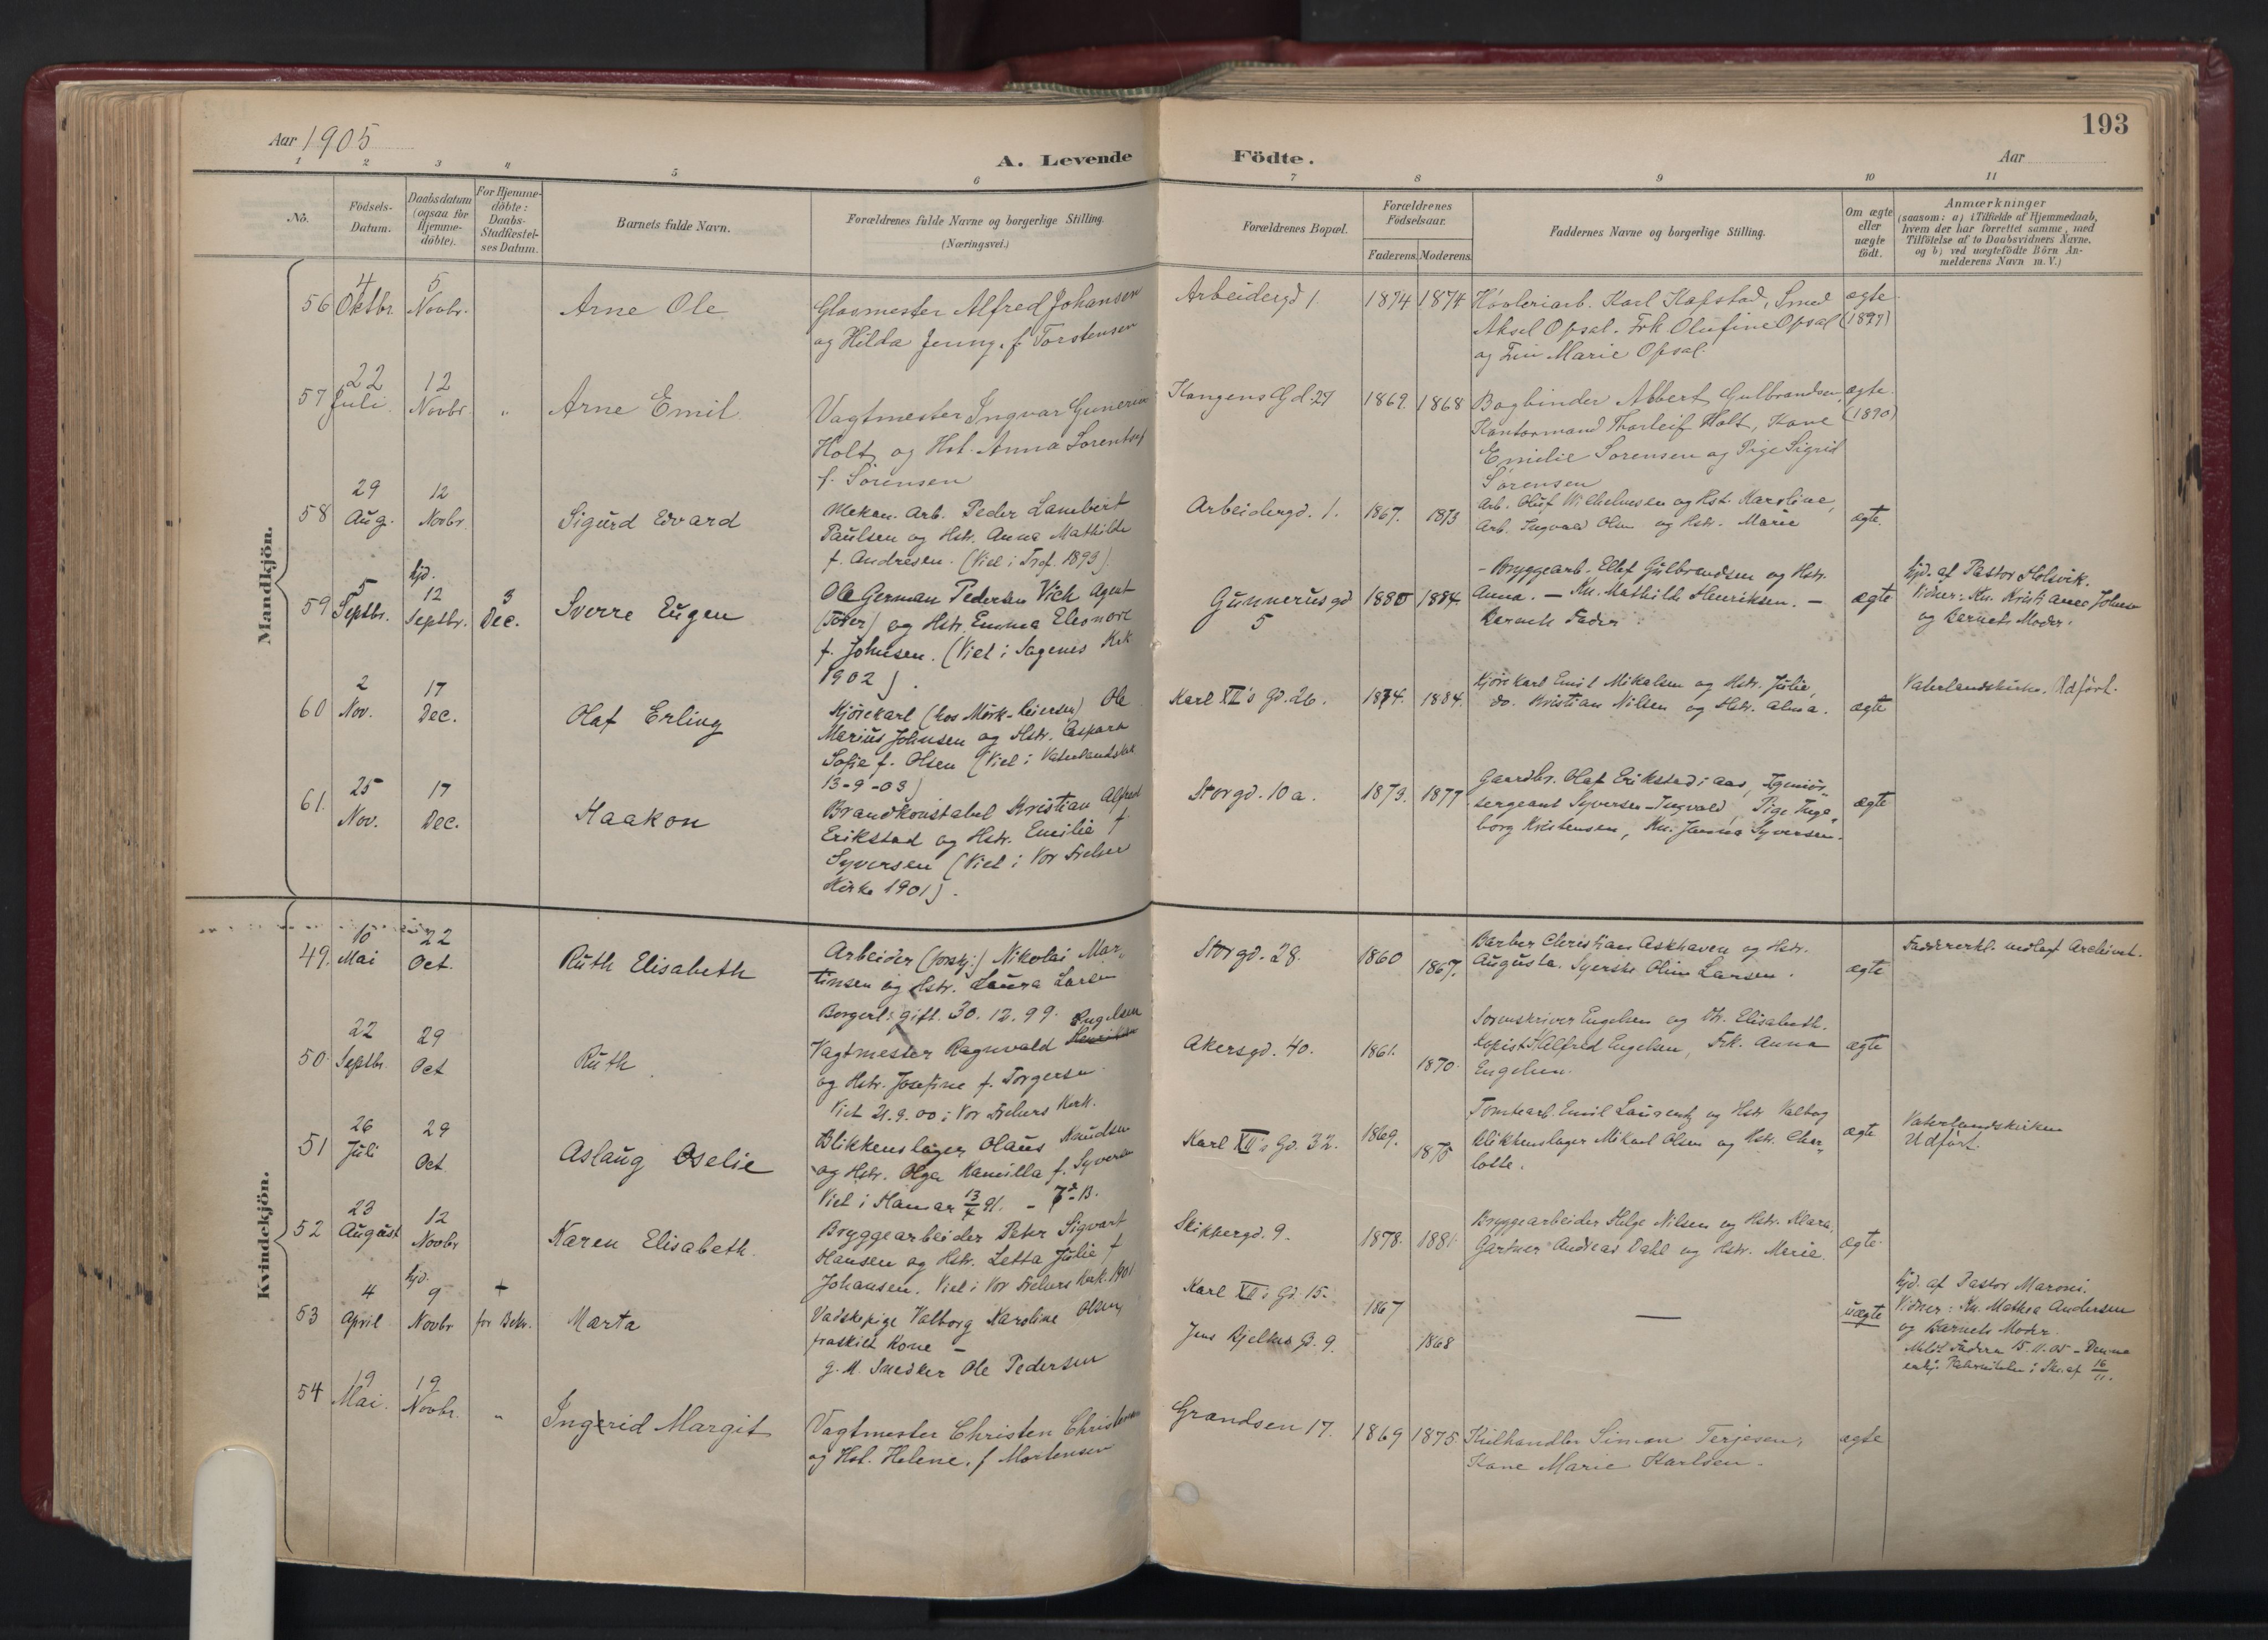 193
Aar 1905
A. Levende Födte.
Aar
1 2 3 4 5 6 7 8 9 10 11
No.
Födsels-Datum.
Daabsdatum (ogsaa for Hjemme-döbte).
For Hjemme-döbte: Daabs-Stadfæstel-ses Datum.
Barnets fulde Navn.
Forældrenes fulde Navne og borgerlige Stilling. (Næringsvei.)
Forældrenes Bopæl.
Forældrenes Födselsaar.
Faderens. Moderens.
Faddernes Navne og borgerlige Stilling.
Om ægte eller uægte födt.
Anmærkninger
(saasom: a) i Tilfælde af Hjemmedaab,
hvem der har forrettet samme, med
Tilföielse af to Daabsvidners Navne.
og b) ved uægtefödte Börn An-
melderens Navn m. V.)
Mandkjön.
56 4 Oktbr. 5 Novbr. Arne Ole
Glasmester Alfred Johansen
og Hilda Jenny, f. Torstensen
Arbeidergd 1. 1874 1874
Høvleriarb. Karl Kapstad, Smed
Aksel Opsal. Frk Olufine Opsal
og Marie Opsal.
ægte (1897)
57 22 Juli 12 Novbr. " Arne Emil
Vagtmester Ingvar Gunerius
Holt og Hst. Anna Sorentse
f. Sørensen
Kongens Gd. 27 1869. 1868
Bogbinder Albert Gulbrandsen,
Kontormand Thorleif Holt, Kone
Emilie Sørensen og Pige Sigrid
Sørensen
ægte. (1890)
58 29 Aug. 12 Novbr. Sigurd Edvard
Mekan. Arb. Peder Lambert
Paulsen og Hstr. Anna Mathilde
f. Andresen. (Viet i Tref. 1893).
Arbeidergd. 1. 1867. 1873
Arb. Oluf Wilhelmsen og Hst. Karoline,
Arb. Ingvald Olsen og Hstr. Marie
ægte.
59 5 Septbr. hjd. 12 Septbr. 3 Dec. Sverre Eugen
Ole German Pedersen Vich Agent
og Hstr. Emma Eleonore
f. Johnsen. (Viet i Sagenes Kirk
1902).
Gunnerusgd 5 1880 1884.
- Bryggearb. Ellef Gulbrandsen og Hstr.
Anna. — Ku. Mathilde Henriksen. —
Barnets Fader.
ægte
hjd. af Pastor Holsvik.
Vidner: Ku. Kristiane Johnse
og Barnets Moder.
60 2 Nov. 17 Dec. Olaf Erling
Kjørekarl (hos Mørk-Reiersen) Ole
Marius Johnsen og Hstr. Caspara
Sofie f. Olsen (Viet i Vaterlandskirk
13-9-03)
Karl XII's Gd. 26. 1874. 1884.
Kjørekarl Emil Mikalsen og Hstr. Julie,
do. Kristian Nilsen og Hstr. Alma.
ægte
Vaterlandskirke. Udført.
61. 25 Nov. 17 Dec. Haakon
Brandkonstabel Kristian Alfred
Erikstad og Hstr. Emilie f.
Syversen (Viet i Vor Frelser
Kirke 1901).
Storgd. 10 a. 1879. 1877
Gaardbr. Olaf Erikstad i Aas, Ingeniør-
sergeant Syversen-Ingvald, Pige Inge-
borg Kristensen, Ku. Syversen.
ægte
Kvindekjön.
49. 10 Mai 22 Oct. Ruth Elisabeth
Arbeider (forskj.) Nikolai Mar-
tinsen og Hstr. Laura Larsen
Borgerl. gift. 30.12.99.
Storgd. 28 1860 1867.
Barber Christian Askhaven og Hstr.
Augusta. Syerske Oline Larsen.
ægte
Faddererkl. nedlagt Archivet.
50 22 Septbr. 29 Oct Ruth
Engelsen
Vagtmester Ragnvald
og Hstr. Josefine f. Torgersen
Viet 21.9.00 i Vor Frelsers Kirk.
Akersgd. 40. 1861. 1870.
Sorenskriver Engelsen og Elisabeth.
Kopist Halfred Engelsen, Frk. Anna
Engelsen.
ægte
51 26 Juli 29 Oct. Aslaug Oselie
Blikkenslager Olaus Knudsen
og Hstr. Olga Kamilla f. Syversen
Viet i Hamar
Karl XII's Gd. 32. 1869. 1875
Tomtearb. Emil Laurentz og Hstr Valbog
Blikkenslager Mikael Olsen og Hstr. Char-
lotte.
ægte
Vaterlandskirken
Udført
52 23 August 12 Novbr Karen Elisabeth.
Bryggearbeider Peter Sigvart
Hansen og Hstr. Letta Julie f.
Johansen. Viet i Vor Frelsers Kirk. 1901
Skippergd. 9. 1878. 1881.
Bryggearbeider Helge Nilsen og Hstr. Klara.
Gartner Andreas Dahl og Hstr. Marie.
ægte.
53 4 April hjd. 9 Novbr + før Bekr. Marta
Vadskepige Valborg Karoline Olsen,
fraskilt Kone —
g. M. Snedker Ole Pedersen
Karl XII's Gd. 15. 1867
Jens Bjelkes G. 9. 1868
—
uægte
hjd. af Pastor Maroni.
Vidner: Ku. Mathea Andersen
og Barnets Moder.
54 19 Mai. 19 Novbr. " Ingrid Margit
Vagtmester Christen Christensen
og Hst. Helene, f. Mortensen
Grændsen 17. 1869 1875
Kulhandler Simon Terjesen,
Kone Marie Karlsen.
ægte